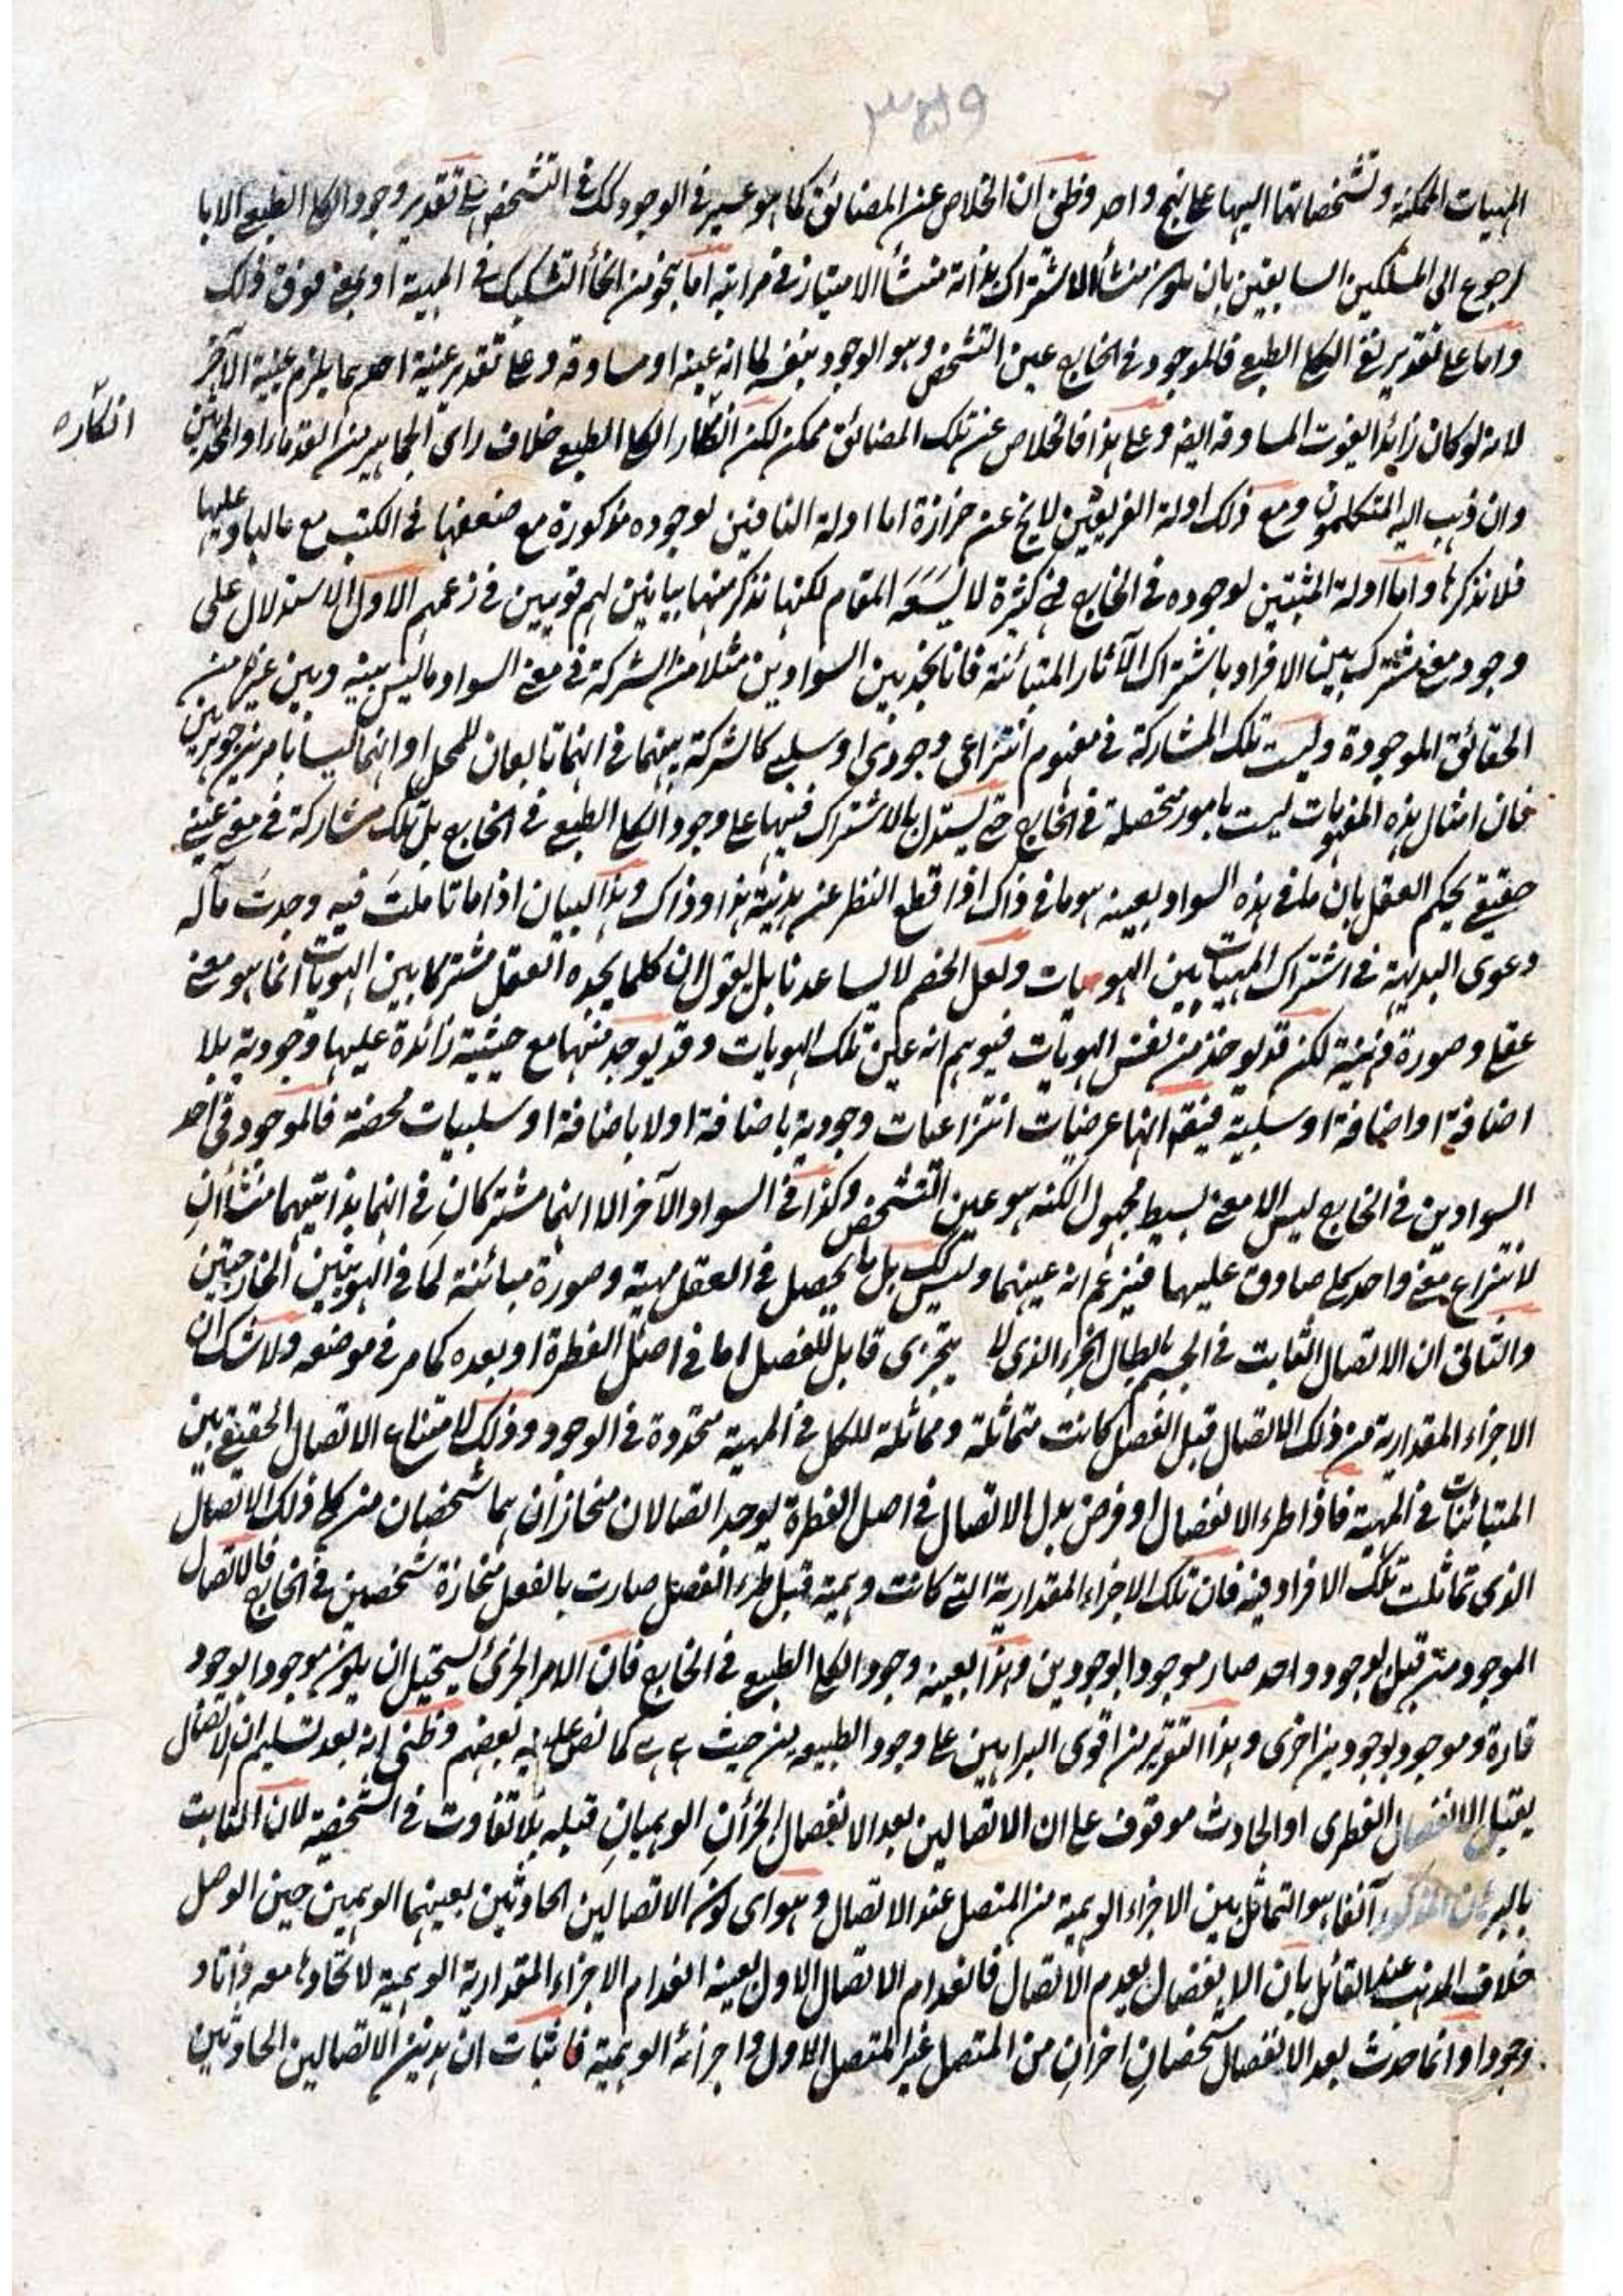 ٣٥٩
المهيات الممكنة وتشخصاتها اليها على نهج واحد وظنى ان الخلاص عن المضائق كما هو عسير فى الوجود كذلك فى التشخص على تقدير وجود الكلى الطبعى الا با
لرجوع الى المسلكين السابقين بان يكون منشأ الاشتراك بذاته منشأ الامتياز فى مراتبه اما بنحو من انحاء التشكيك فى المهية او بمعنى فوق ذلك
واما على تقدير نفى الكلى الطبعى فالموجود فى الخارج عين التشخص وهو الوجود بنفسه لما انه عينه او مساوقه وعلى تقدير عينية احدهما يلزم عينية الآخر
لانه لو كان زائدا لفوت المساوقة ايضه وعلى هذا فالخلاص عن تلك المضائق ممكن لكن انكار الكلى الطبعى خلاف راى الجماهير من القدماء والمحدثين
انكاره
وان ذهب اليه المتكلمون ومع ذلك ادلة الفريقين لا يخ عن حزازة اما ادلة النافين لوجوده مذكورة مع ضعفها فى الكتب مع مالها وعليها
فلا نذكرها واما ادلة المثبتين لوجوده فى الخارج فهى كثيرة لا يسعه المقام لكنها نذكر منها بيانين لهم قويين فى زعمهم الاول الاستدلال على
وجود معنى مشترك بين الافراد باشتراك الآثار المتبائنة فانا نجد بين السوادين مثلا من الشركة فى معنى السواد ما ليس بينه وبين غيره من
الحقائق الموجودة وليست تلك المشاركة فى مفهوم انتزاعى وجودى او سلبى كالشركة بينهما فى انهما تابعان للمحل او انهما ليسا بامرين جوهرين
فان امثال هذه المفهومات ليست بامور متحصلة فى الخارج حتى يستدل بالاشتراك فيها على وجود الكلى الطبعى فى الخارج بل تلك مشاركة فى معنى عينى
حقيقى يحكم العقل بان ما فى هذه السواد بعينه هو ما فى ذاك اذا قطع النظر عن هذية هذا وذاك وهذا البيان اذا ما تاملت فيه وجدت مآله
دعوى البديهة فى اشتراك المهيات بين الهويات ولعل الخصم لا يساعدنا بل يقول ان كلما يجده العقل مشتركا بين الهويات انما هو معنى
عقلى وصورة ذهنية لكن قد يوخذ من نفس الهويات فيوهم انه عين تلك الهويات وقد يوجد منها مع حيثية زائدة عليها وجودية بلا
اضافة او اضافة او سلبية فيقه انها عرضيات انتزاعيات وجودية باضافة او لا باضافة او سلبيات محضة فالموجود فى احد
السوادين فى الخارج ليس الا معنى بسيط مجهول الكنه هو عين التشخص وكذا فى السواد الآخر الا انهما مشتركان فى انهما بذاتيهما منشأان
لانتزاع معنى واحد كلى صادق عليهما فيزعم انه عينهما وليس كك بل ما يحصل فى العقل مهية وصورة مبائنة لما فى الهويتين الخارجيتين
والثانى ان الاتصال الثابت فى الجسم بابطال الجزء الذى لا يتجزى قابل للفصل اما فى اصل الفطرة او بعده كما مر فى موضعه ولا شك ان
الاجزاء المقدارية من ذلك الاتصال قبل الفصل كانت متماثلة ومماثلة للكل فى المهية متحدة فى الوجود وذلك لامتناع الاتصال الحقيقى بين
المتبائنات فى المهية فاذا طرء الانفصال او فرض بدل الاتصال فى اصل الفطرة يوجد اتصالان منحازان هما شخصان من كلى ذلك الاتصال
الذى تماثلت تلك الافراد فيه فان تلك الاجزاء المقدارية التى كانت وهمية قبل طرء الفصل صارت بالفعل منحازة شخصين فى الخارج فالاتصال
الموجود من قبل بوجود واحد صار موجودا بوجودين وهذا بعينه وجود الكلى الطبعى فى الخارج فان الامر الجزئى يستحيل ان يكون موجودا بوجود
تارة وموجود بوجودين اخرى وهذا التقرير من اقوى البراهين على وجود الطبيعة من حيث هى هى كما نص عليه بعضهم وظنى انه بعد تسليم ان الاتصال
يقبل الانفصال الفطرى او الحادث موقوف على ان الاتصالين بعد الانفصال الجزأن الوهميان قبله بلا تفاوت فى الشخصية لان الثابت
بالبرهان المذكور آنفا هو التماثل بين الاجزاء الوهمية من المتصل عند الاتصال وهو اى كون الاتصالين الحادثين بعينهما الوهمين حين الوصل
خلاف المذهب عند القائل بان الانفصال يعدم الاتصال فانعدام الاتصال الاول بعينه انعدام الاجزاء المقدارية الوهمية لاتحادها معه ذاتا و
وجودا وانما حدث بعد الانفصال شخصان اخران من المتصل غير المتصل الاول واجزائه الوهمية فاثبات ان هذين الاتصالين الحادثين